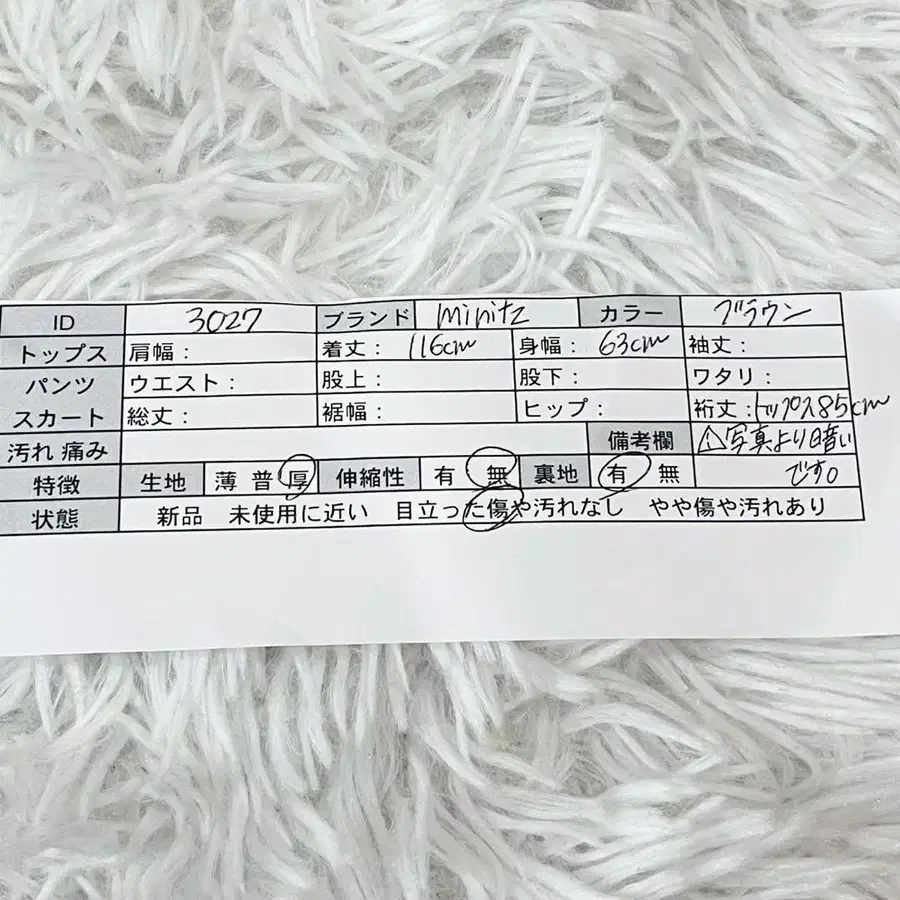 ID 3027 ブランド minitz カラー ブラウン
トップス 肩幅: 着丈: 116cm 身幅: 63cm 袖丈:
パンツ ウエスト: 股上: 股下: ワタリ:
スカート 総丈: 裾幅: ヒップ: 裄丈:トップス85cm
汚れ 痛み 備考欄 ⚠写真より暗い
特徴 生地 薄 普 厚 伸縮性 有 無 裏地 有 無 です。
状態 新品 未使用に近い 目立った傷や汚れなし やや傷や汚れあり